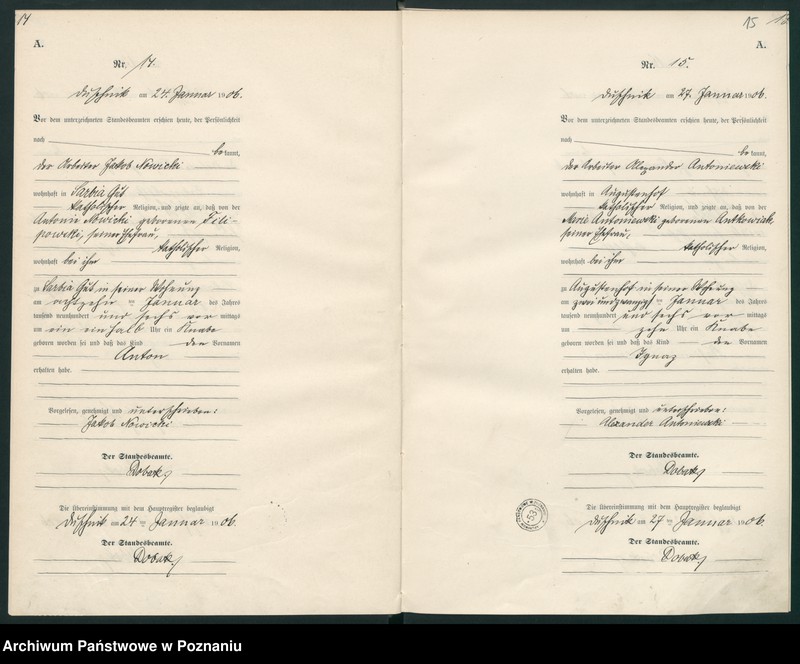 14
A.
Nr. 14.
Duschnik am 24. Januar 1906.
Vor dem unterzeichneten Standesbeamten erschien heute, der Persönlichkeit
nach
bekannt,
der Arbeiter Jakob Nowicki
wohnhaft in Sarbia Gut
katholischer Religion, und zeigte an, daß von der
Antonie Nowicki geborenen Fili-
powski, seiner Ehefrau,
katholischer Religion,
wohnhaft bei ihm
zu Sarbia Gut in seiner Wohnung
am achtzehnten Januar des Jahres
tausend neunhundert und sechs vor mittags
um ein einhalb Uhr ein Knabe
geboren worden sei und daß das Kind den Vornamen
Anton
erhalten habe.
Vorgelesen, genehmigt und unterschrieben:
Jakob Nowicki
Der Standesbeamte.
Die Übereinstimmung mit dem Hauptregister beglaubigt
Duschnik am 24ten Januar 1906.
Der Standesbeamte.
15
A.
Nr. 15.
Duschnik am 27. Januar 1906.
Vor dem unterzeichneten Standesbeamten erschien heute, der Persönlichkeit
nach
bekannt,
der Arbeiter Alexander Antoniewski
wohnhaft in Augustenhof
katholischer Religion, und zeigte an, daß von der
Marie Antoniewski geborenen Antkowiak
seiner Ehefrau,
katholischer Religion,
wohnhaft bei ihm
zu Augustenhof in seiner Wohnung
am zwei und zwanzigsten Januar des Jahres
tausend neunhundert und sechs vor mittags
um zehn Uhr ein Knabe
geboren worden sei und daß das Kind den Vornamen
Ignaz
erhalten habe.
Vorgelesen, genehmigt und unterschrieben:
Alexander Antoniewski
Der Standesbeamte.
Die Übereinstimmung mit dem Hauptregister beglaubigt
Duschnik am 27ten Januar 1906.
Der Standesbeamte.
53
Archiwum Państwowe w Poznaniu